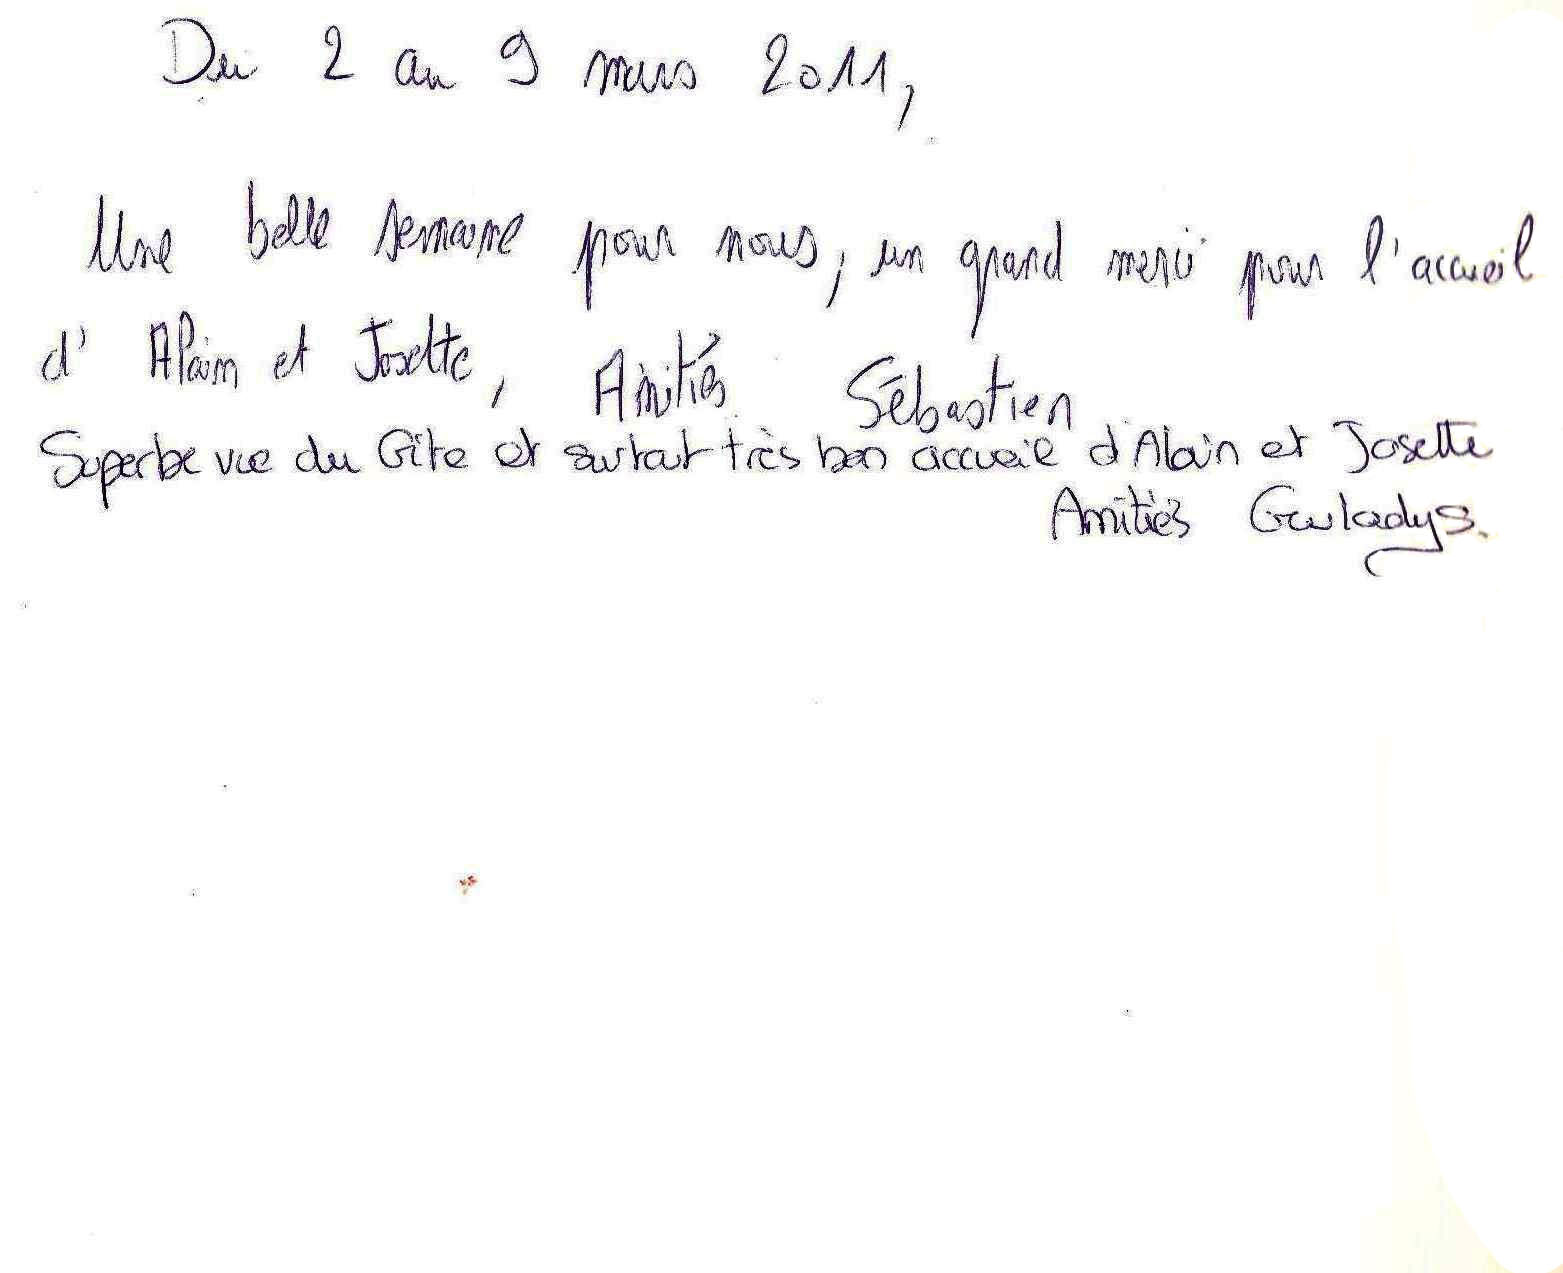 Du 2 au 9 mars 2011,
Une belle semaine pour nous, un grand merci pour l'accueil
d'Alain et Josette, Amitiés Sébastien
Superbe vue du Gîte et surtout très bon accueil d'Alain et Josette
Amitiés Gwladys.